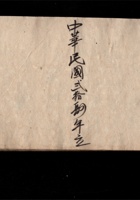 中華民國弍拾年立